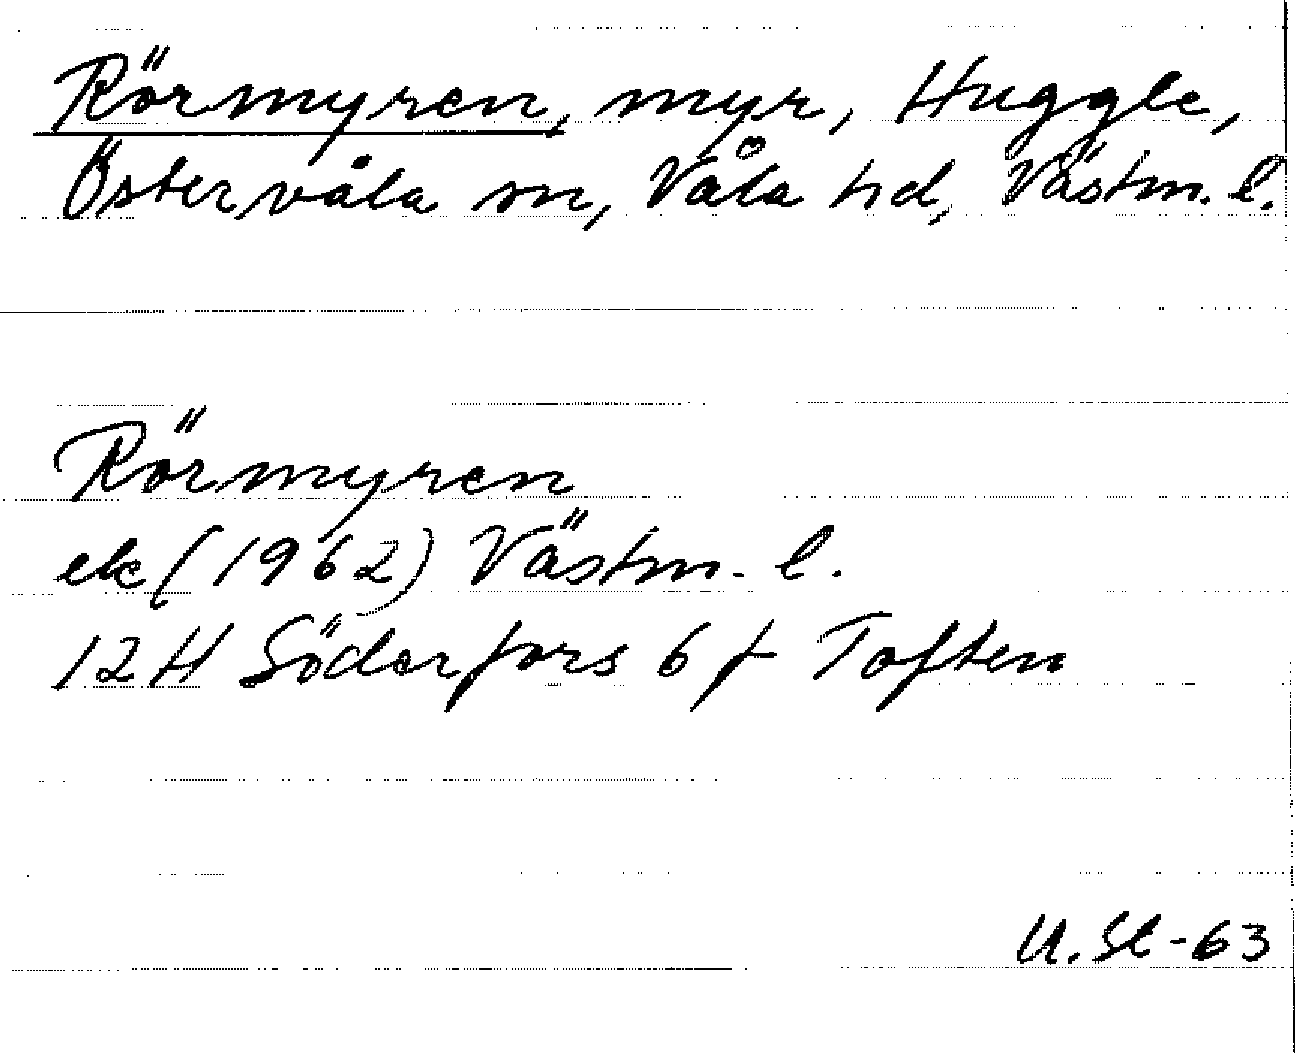 Rörmyren, myr, Huggle,
Östervåla sn, Våla hd, Västm. l.
Rörmyren
ek (1962) Västm. l.
12 H Söderfors 6 f Toften
U. Sl-63